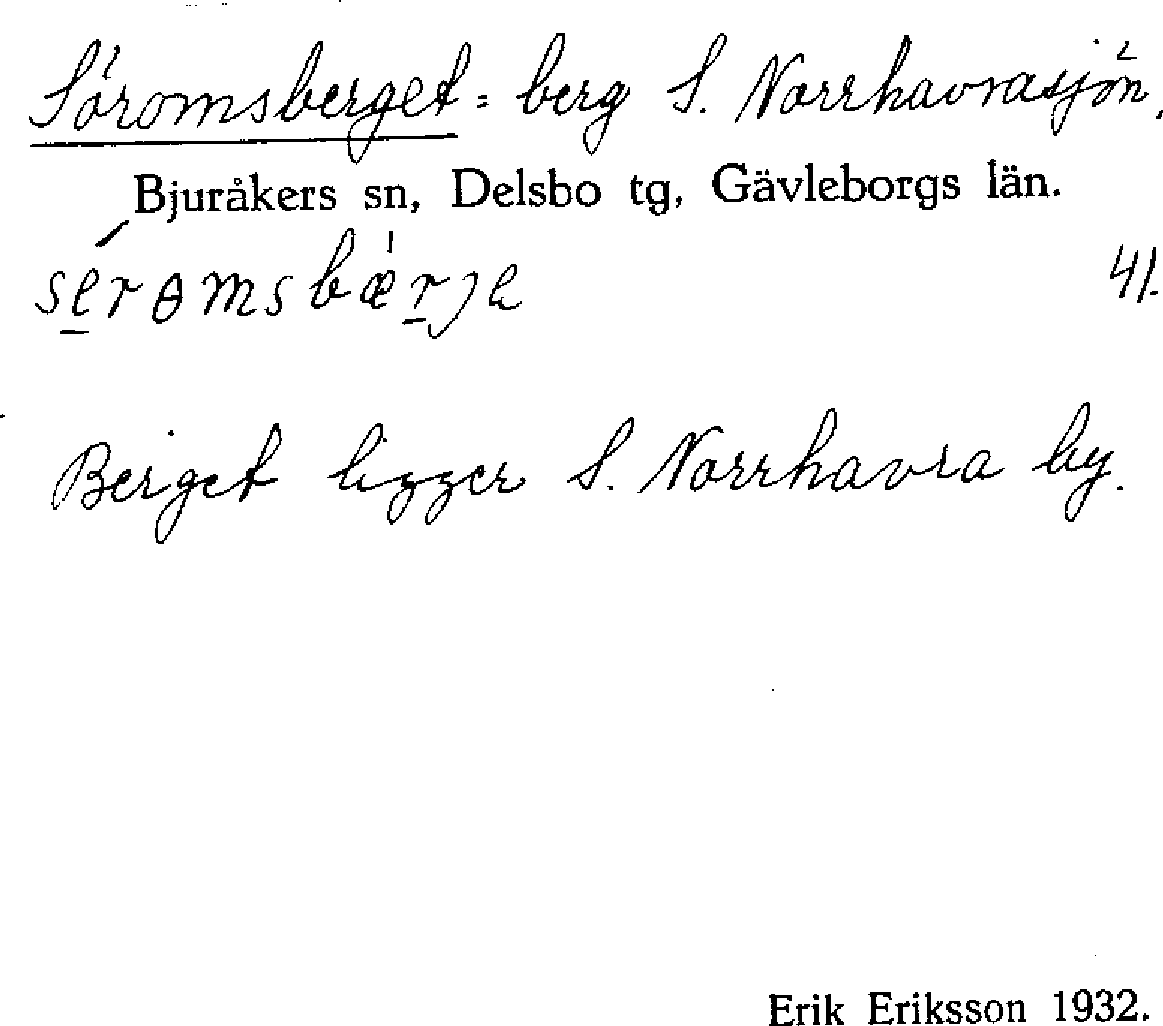 Söromsberget = berg S. Norrhavrasjön.
Bjuråkers sn, Delsbo tg, Gävleborgs län.
sérɵmsbæ̀rje 41.
Berget ligger S. Norrhavra by.
Erik Eriksson 1932.